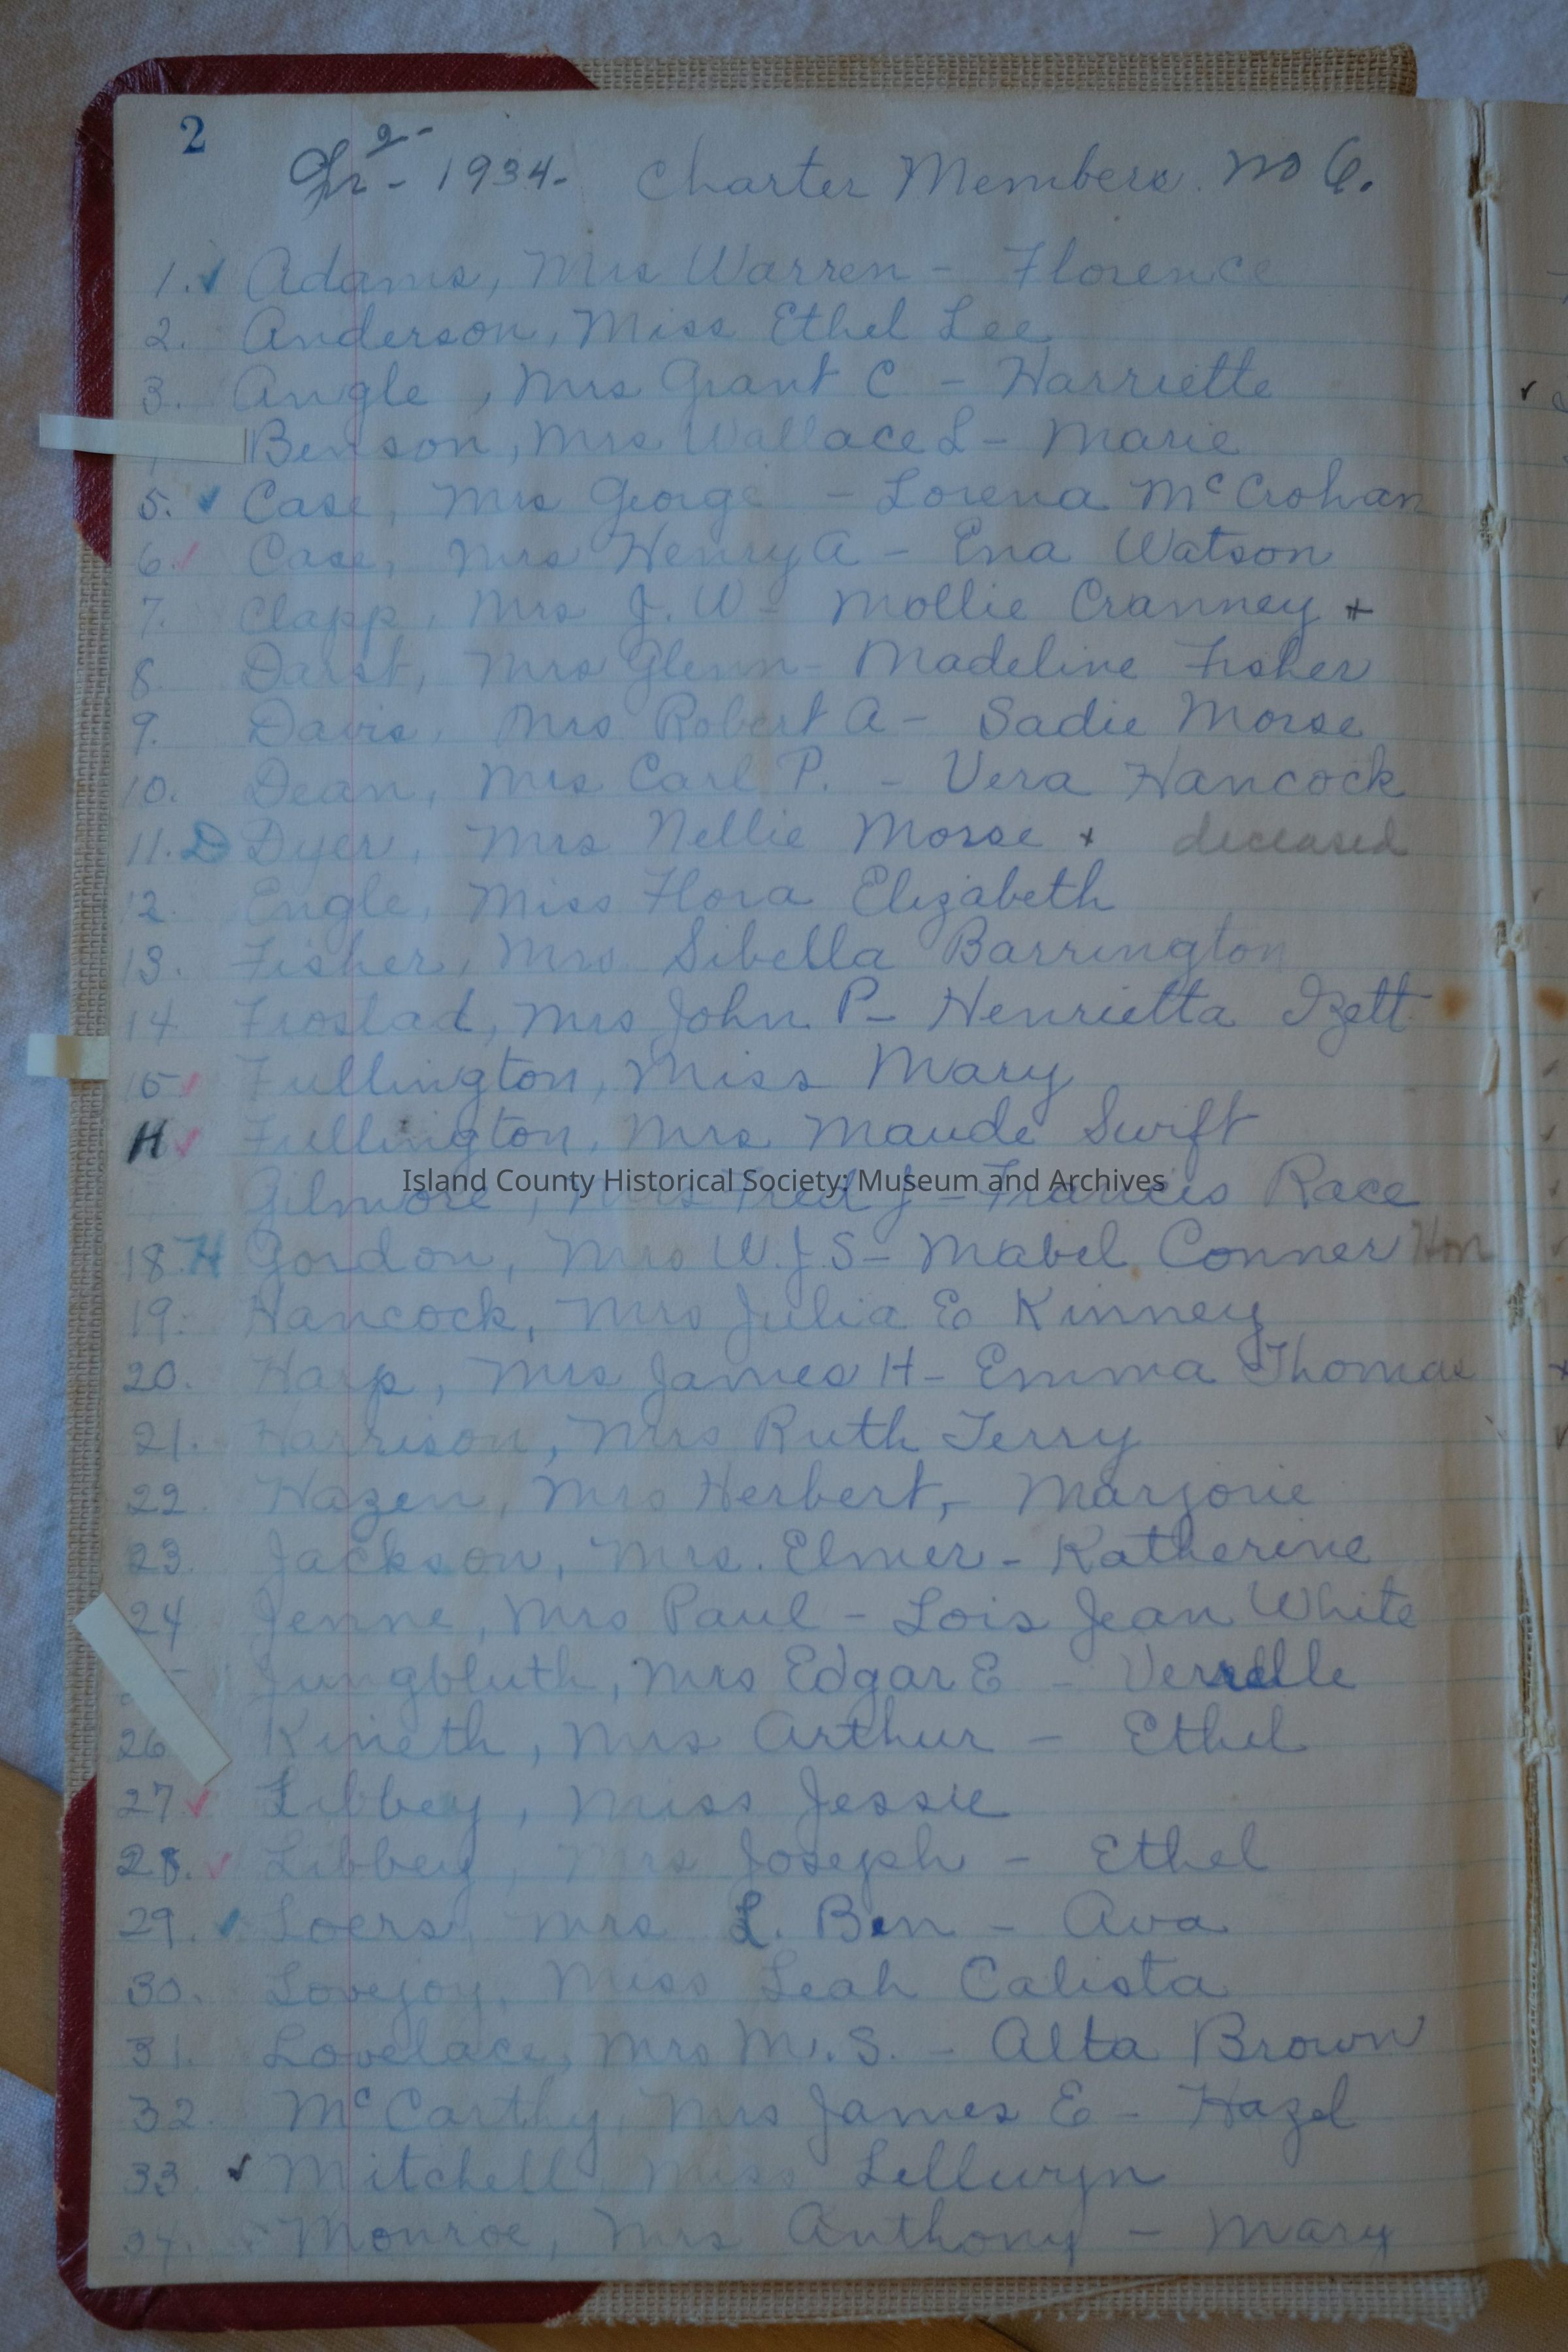 2
2-
Apr - 1934. Charter Members. No 6.
1. ✓ Adams, Mrs Warren - Florence
2. Anderson, Miss Ethel Lee
3. Angle, Mrs Grant C - Harriette
Benson, Mrs Wallace L - Marie
5. ✓ Case, Mrs George - Lorena McCrohan
6. ✓ Case, Mrs Henry A - Ena Watson
7. Clapp, Mrs J. W - Mollie Cranney +
8. Darst, Mrs Glenn - Madeline Fisher
9. Davis, Mrs Robert A - Sadie Morse
10. Dean, Mrs Carl P. - Vera Hancock
11. D Dyer, Mrs Nellie Morse + deceased
12. Engle, Miss Flora Elizabeth
13. Fisher, Mrs Sibella Barrington
14 Frostad, Mrs John P - Henrietta Izett
15 ✓ Fullington, Miss Mary
H ✓ Fullington, Mrs. Maude Swift
Island County Historical Society; Museum and Archives
Gilmore, Mrs Fred J - Francis Race
18 H Gordon, Mrs W. J. S - Mabel Conner Hon
19. Hancock, Mrs Julia E Kinney
20. Harp, Mrs James H - Emma Thomas
21. Harrison, Mrs Ruth Terry
22. Hazen, Mrs Herbert, - Marjorie
23. Jackson, Mrs. Elmer - Katherine
24 Jenne, Mrs Paul - Lois Jean White
Jungbluth, Mrs Edgar E - Verrelle
26 Kineth, Mrs Arthur - Ethel
27 ✓ Libbey, Miss Jessie
28. ✓ Libbey, Mrs Joseph - Ethel
29. ✓ Loers, Mrs L. Ben - Ava
30. Lovejoy, Miss Leah Calista
31. Lovelace, Mrs M. S. - Alta Brown
32. McCarthy, Mrs James E - Hazel
33. ✓ Mitchell, Miss Lellwyn
34. Monroe, Mrs Anthony - Mary